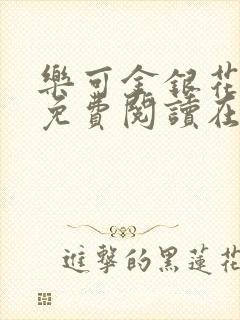 樂可金銀花
免費閱讀在
進擊的黑蓮花